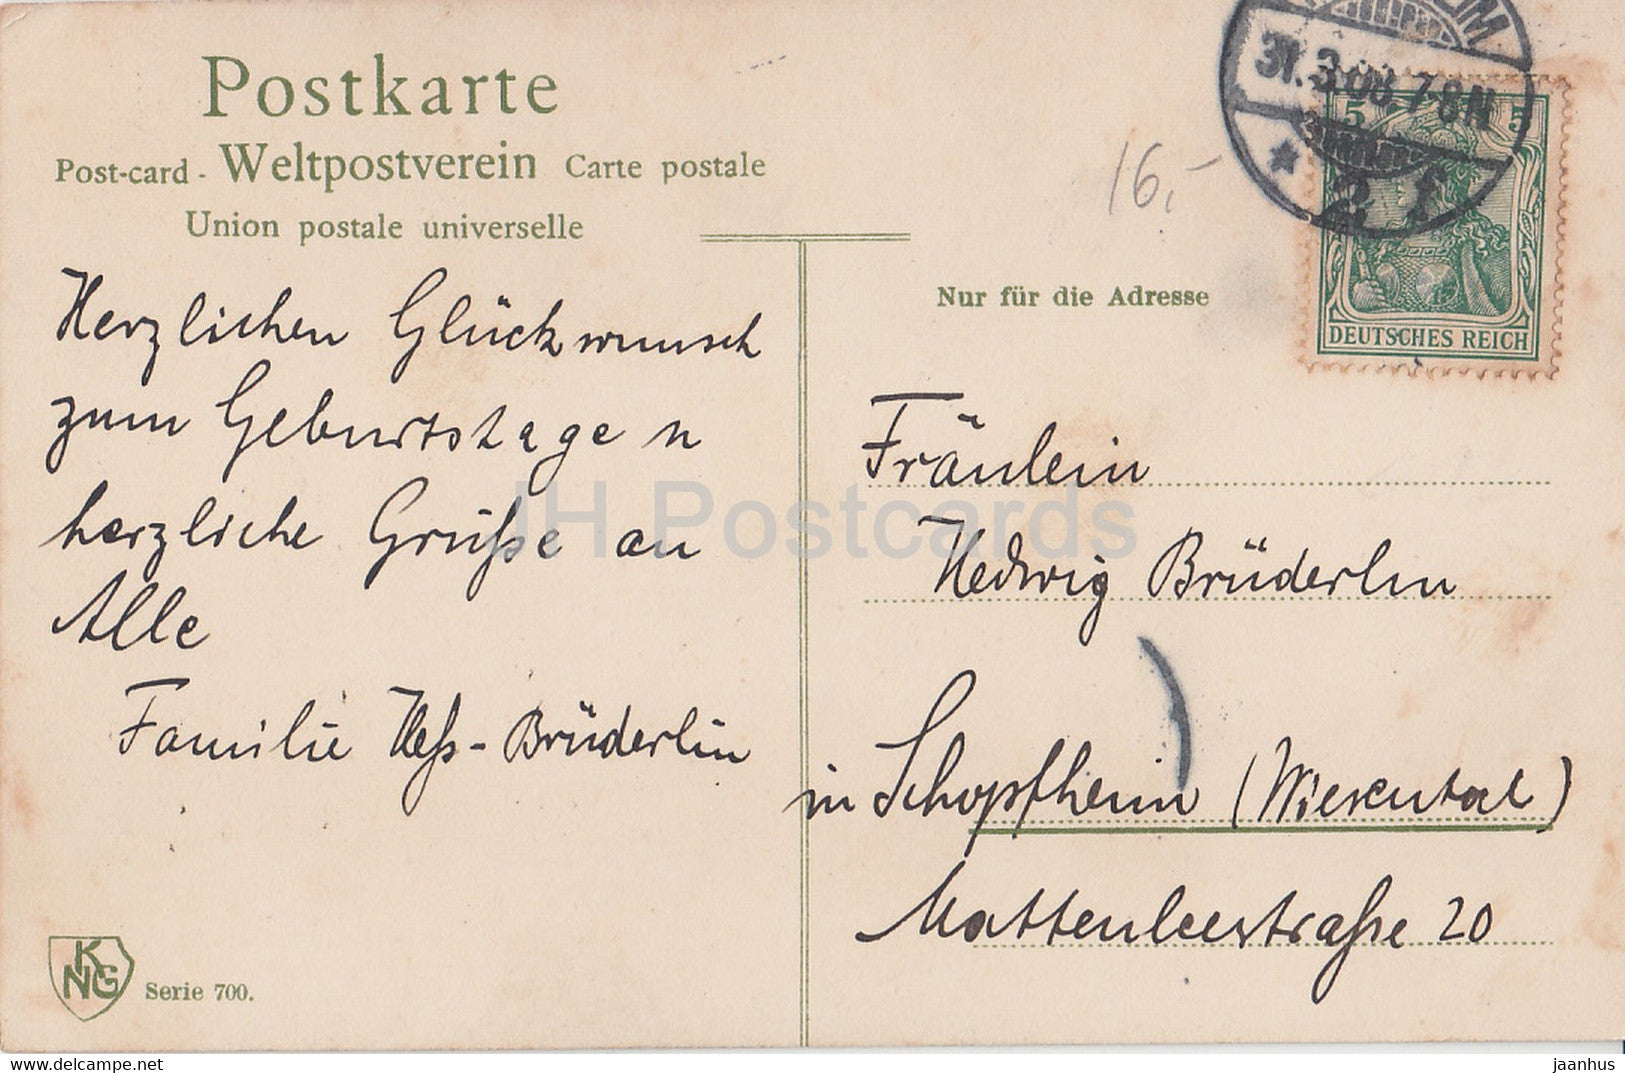 Postkarte
Post-card - Weltpostverein Carte postale
Union postale universelle
16,-
31.3.08.7-8N
2 f
5 5
DEUTSCHES REICH
Nur für die Adresse
Herzlichen Glückwunsch
zum Geburtstage u
herzliche Grüße an
Alle
Familie Heß-Brüderlin
Fräulein
Hedwig Brüderlin
in Schopfheim (Wiesental)
Mattenleestraße 20
KNG
Serie 700.
JH Postcards
www.delcampe.net
jaanhus